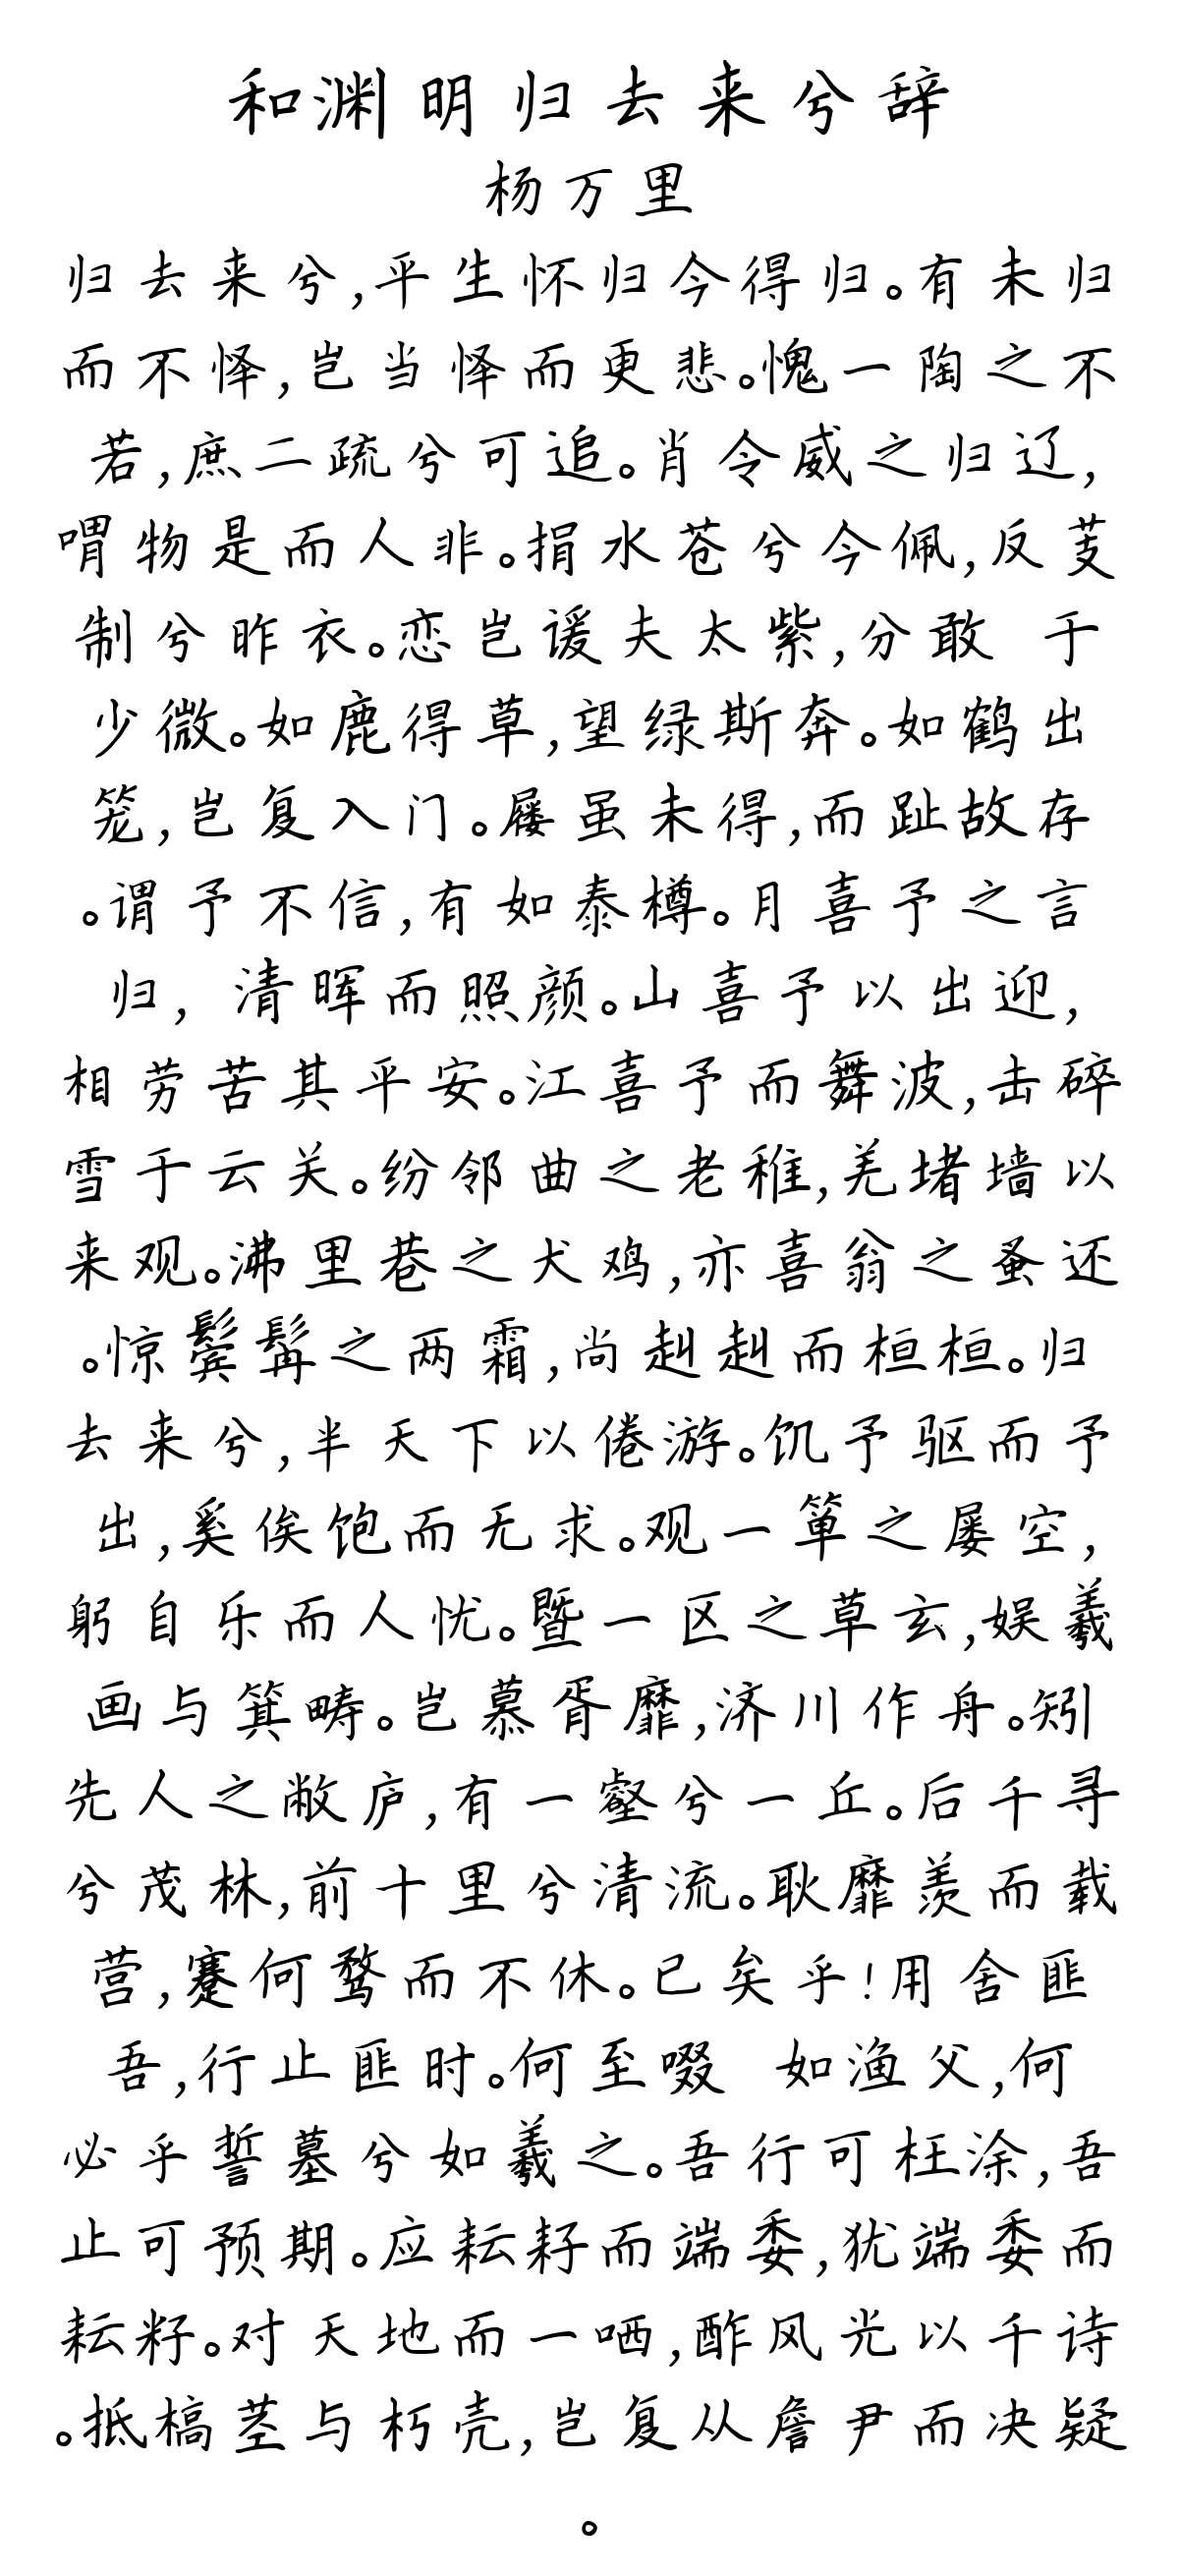 和渊明归去来兮辞
杨万里
归去来兮,平生怀归今得归。有未归
而不怿,岂当怿而更悲。愧一陶之不
若,庶二疏兮可追。肖令威之归辽,
喟物是而人非。捐水苍兮今佩,反芰
制兮昨衣。恋岂谖夫太紫,分敢 于
少微。如鹿得草,望绿斯奔。如鹤出
笼,岂复入门。屦虽未得,而趾故存
。谓予不信,有如泰樽。月喜予之言
归, 清晖而照颜。山喜予以出迎,
相劳苦其平安。江喜予而舞波,击碎
雪于云关。纷邻曲之老稚,羌堵墙以
来观。沸里巷之犬鸡,亦喜翁之蚤还
。惊鬓髯之两霜,尚赳赳而桓桓。归
去来兮,半天下以倦游。饥予驱而予
出,奚俟饱而无求。观一箪之屡空,
躬自乐而人忧。暨一区之草玄,娱羲
画与箕畴。岂慕胥靡,济川作舟。矧
先人之敝庐,有一壑兮一丘。后千寻
兮茂林,前十里兮清流。耿靡羡而载
营,蹇何骛而不休。已矣乎!用舍匪
吾,行止匪时。何至啜 如渔父,何
必乎誓墓兮如羲之。吾行可枉涂,吾
止可预期。应耘耔而端委,犹端委而
耘籽。对天地而一哂,酢风光以千诗
。抵槁茎与朽壳,岂复从詹尹而决疑
。